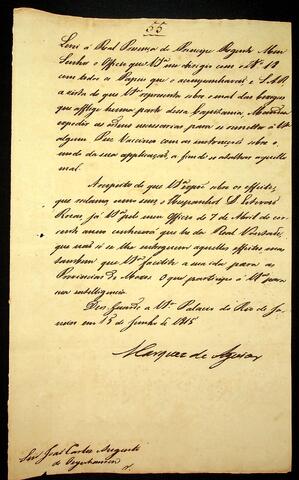 55
Levei á Real Presença do Principe Regente Meu
Senhor o Officio que V.S. me dirigio com o N.º 12
com todos os Papeis que o acompanharão e S.A.R.
á vista do que V.S. representa sobre o mal das bexigas
que afflige huma parte dessa Capitania, Mandou
expedir as ordens necessarias para se remetter a V.S.
algum Puz Vaccinico com as instrucções sobre o
modo da sua applicação, a fim de se atalhar aquelle
mal.
A respeito do que V.S. expõe sobre os effeitos,
que reclama como seus o Hespanhol D.
já V.S. pelo meu Officio de 7 de Abril do cor-
rente anno conhecerá que he da Real Vontade,
que não só se lhe entreguem aquelles effeitos, mas
tambem que V.S. facilite a sua ida para as
Provincias de O que participo a V.S. para
sua intelligencia.
Deos Guarde a V.S. Palacio do Rio de Ja-
neiro em 13 de Junho de 1815
Marquez de Aguiar
Snr. João Carlos Augusto
de Oeynhausen